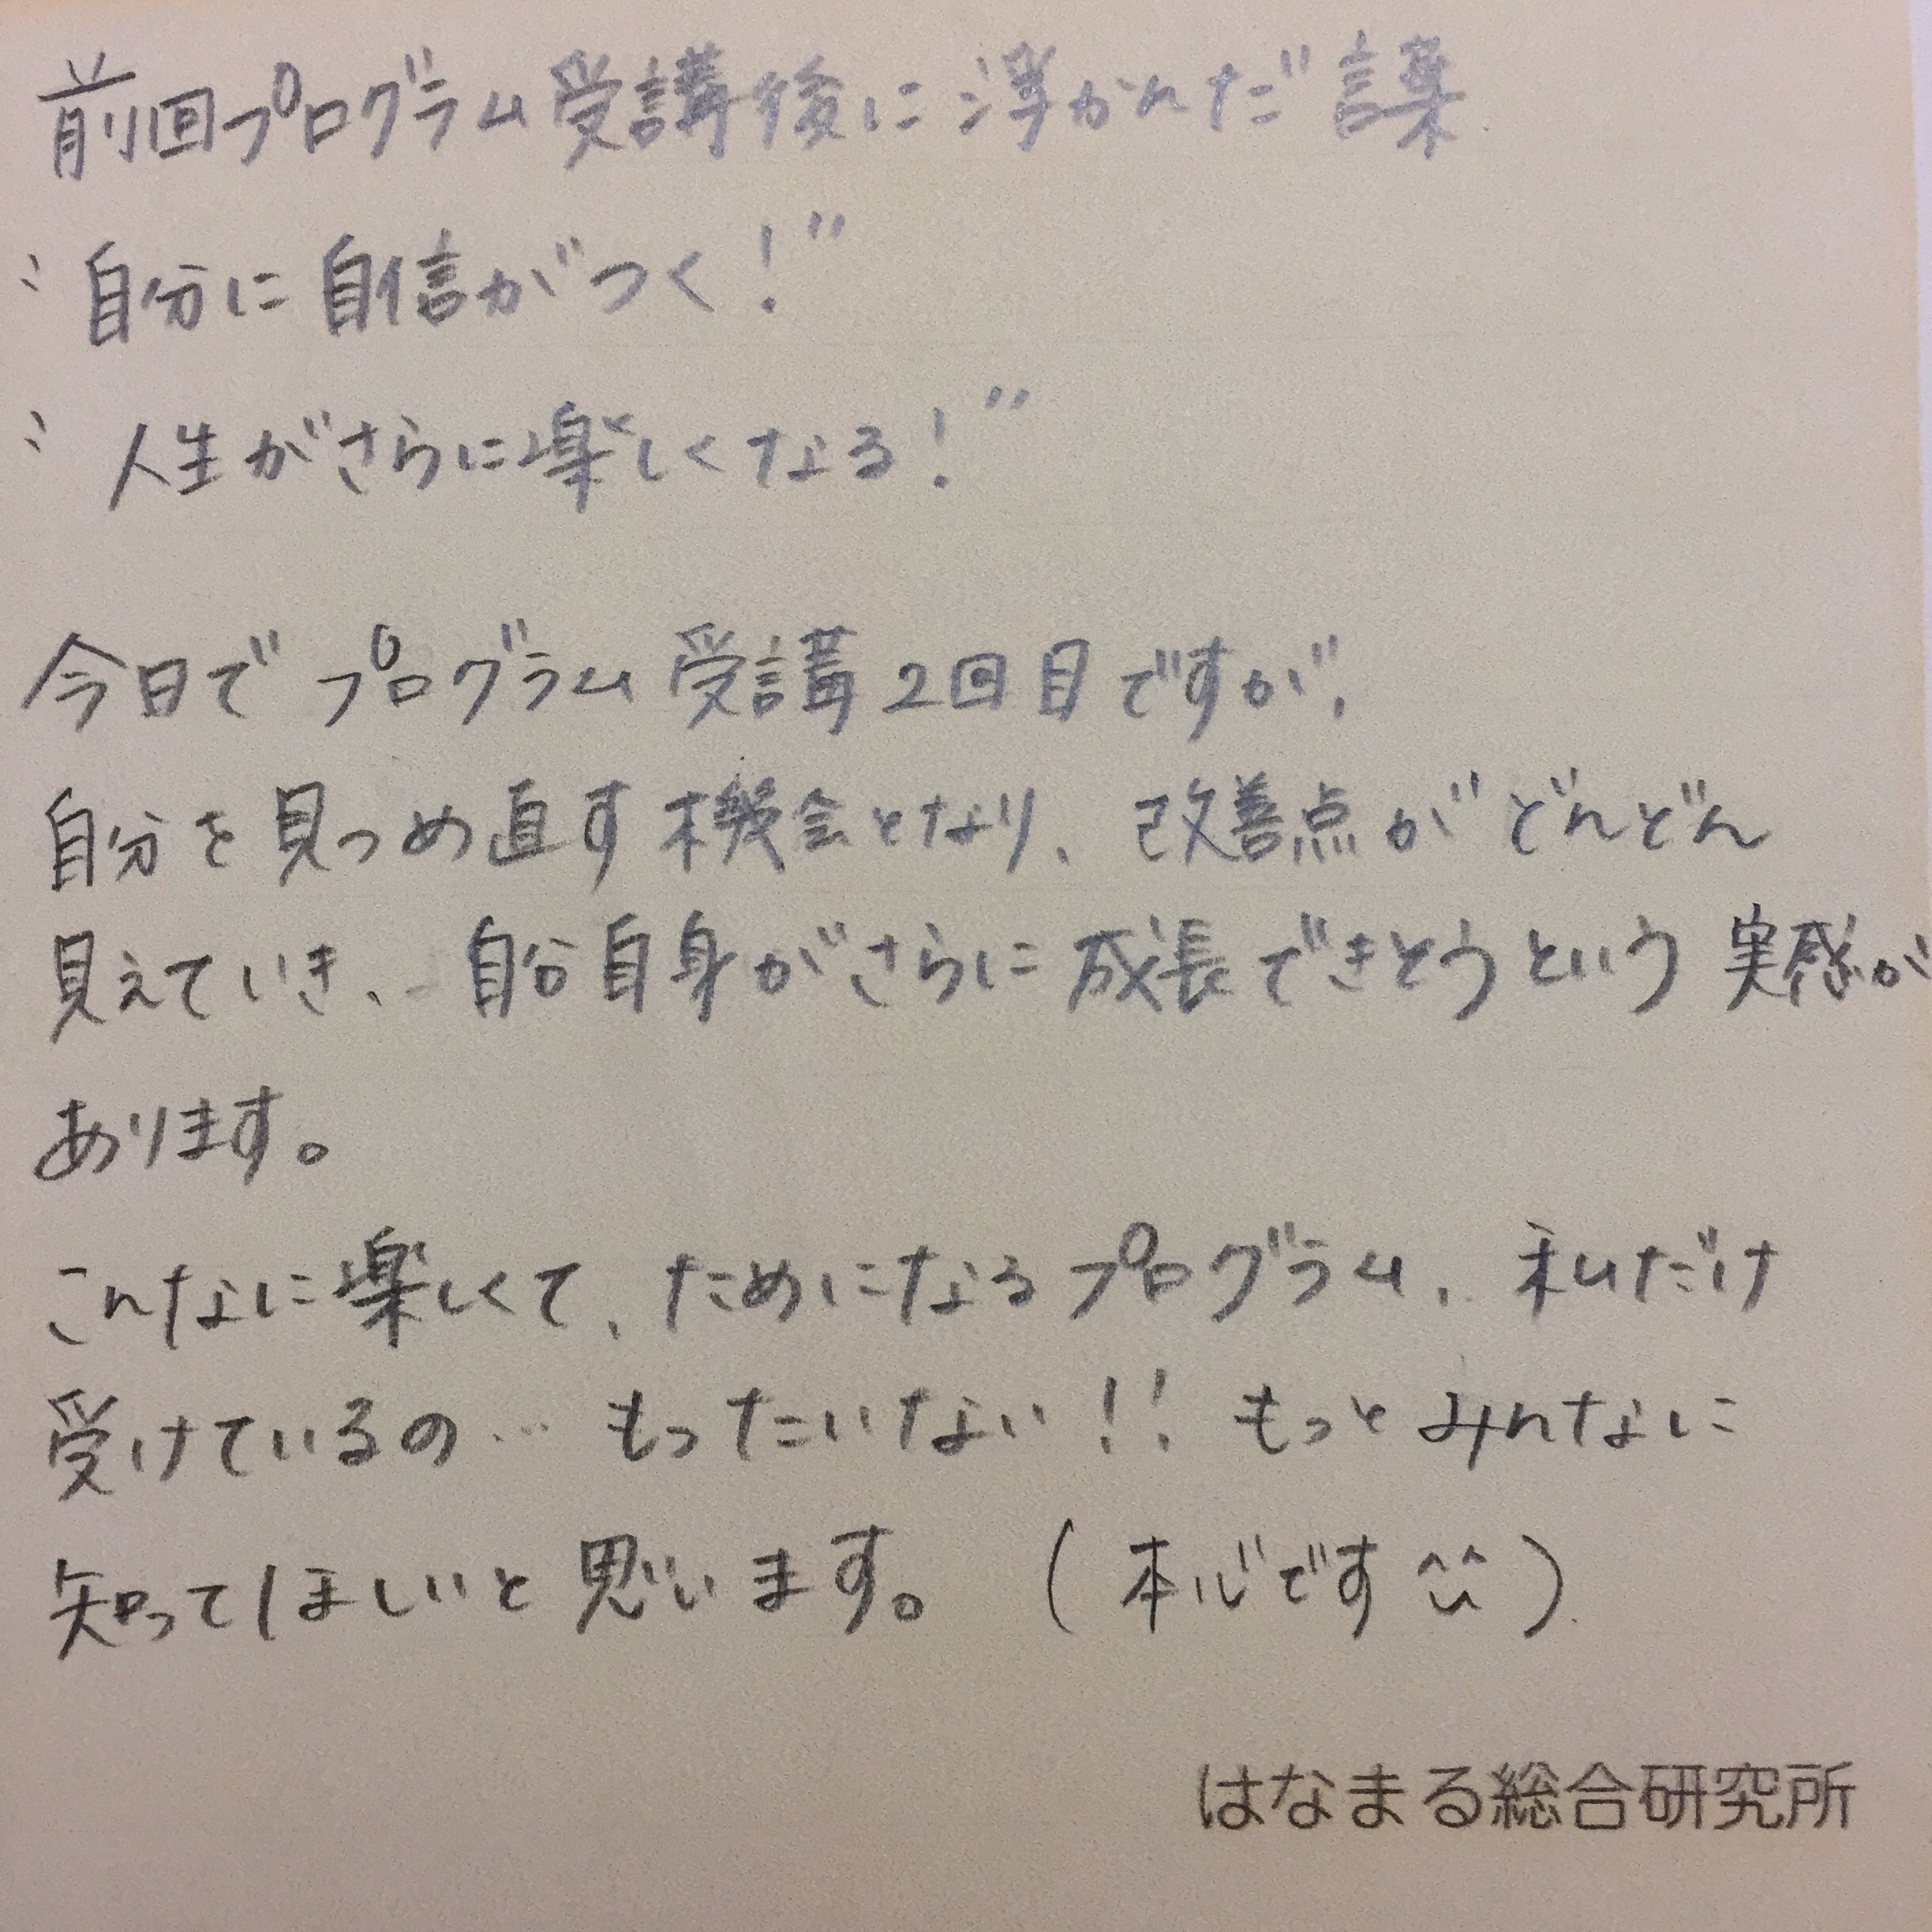 前回プログラム受講後に浮かんだ言葉
〝自分に自信がつく!〞
〝人生がさらに楽しくなる!〞
今日でプログラム受講2回目ですが、
自分を見つめ直す機会となり、改善点がどんどん
見えていき、自分自身がさらに成長できそうという実感が
あります。
こんなに楽しくて、ためになるプログラム、私だけ
受けているの…もったいない!!もっとみんなに
知ってほしいと思います。(本心です^^)
はなまる総合研究所